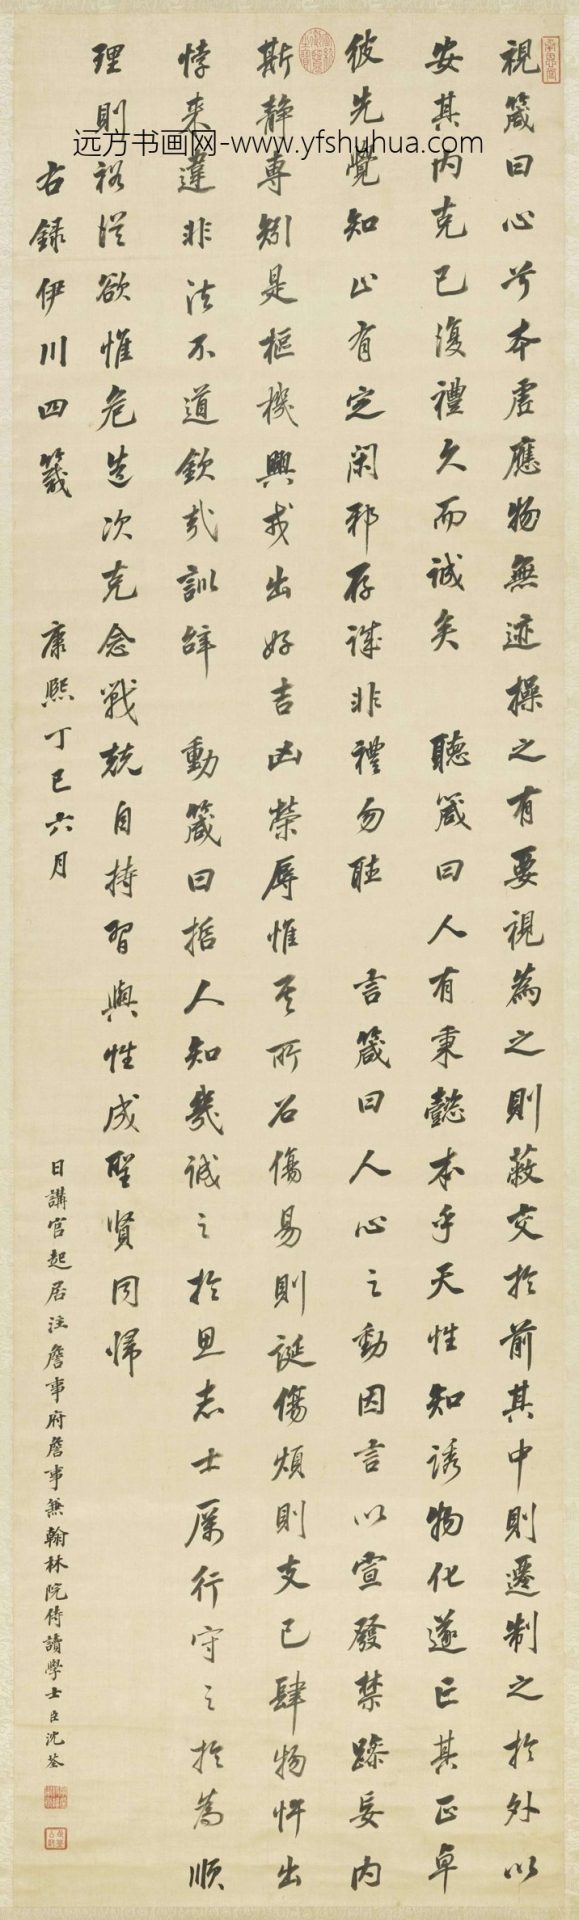 視箴曰心兮本虛應物無迹操之有要視為之則蔽交於前其中則遷制之於外以
安其內克己復禮久而誠矣 聽箴曰人有秉懿本乎天性知誘物化遂亡其正卓
彼先覺知止有定閑邪存誠非禮勿聽 言箴曰人心之動因言以宣發禁躁妄內
斯靜專矧是樞機興戎出好吉凶榮辱惟其所召傷易則誕傷煩則支己肆物忤出
悖來違非法不道欽哉訓辭 動箴曰哲人知幾誠之於思志士厲行守之於為順
理則裕從欲惟危造次克念戰兢自持習與性成聖賢同歸
右錄伊川四箴 康熙丁巳六月 日講官起居注詹事府詹事兼翰林院侍讀學士臣沈荃
远方书画网-www.yfshuhua.com